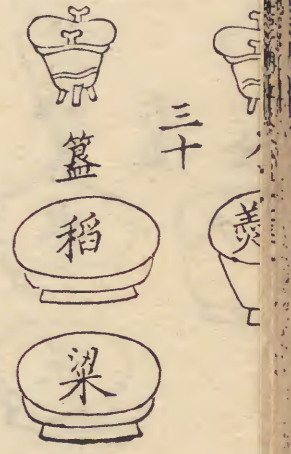 羹
三十
簋
稻
粱